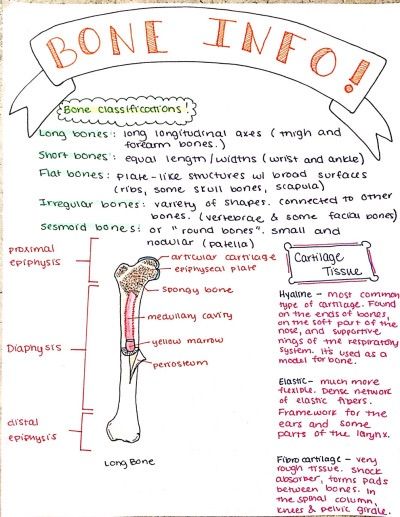 BONE INFO!
Bone classifications!
Long bones: long longitudinal axes (thigh and
forearm bones.)
Short bones: equal length/widths (wrist and ankle)
Flat bones: plate-like structures w/ broad surfaces
(ribs, some skull bones, scapula)
Irregular bones: variety of shapes. connected to other
bones. (vertebrae & some facial bones)
Sesmoid bones: or "round bones". small and
nodular (patella)
proximal
epiphysis
articular cartilage
epiphyseal plate
spongy bone
medullary cavity
Diaphysis
yellow marrow
periosteum
distal
epiphysis
Long Bone
Cartilage
Tissue
Hyaline - most common
type of cartilage. Found
on the ends of bones,
on the soft part of the
nose, and supportive
rings of the respiratory
system. It's used as a
model for bone.
Elastic- much more
flexible. Dense network
of elastic fibers.
Framework for the
ears and some
parts of the larynx.
Fibrocartilage - very
rough tissue. shock
absorber, forms pads
between bones. In
the spinal column,
knees & pelvic girdle.